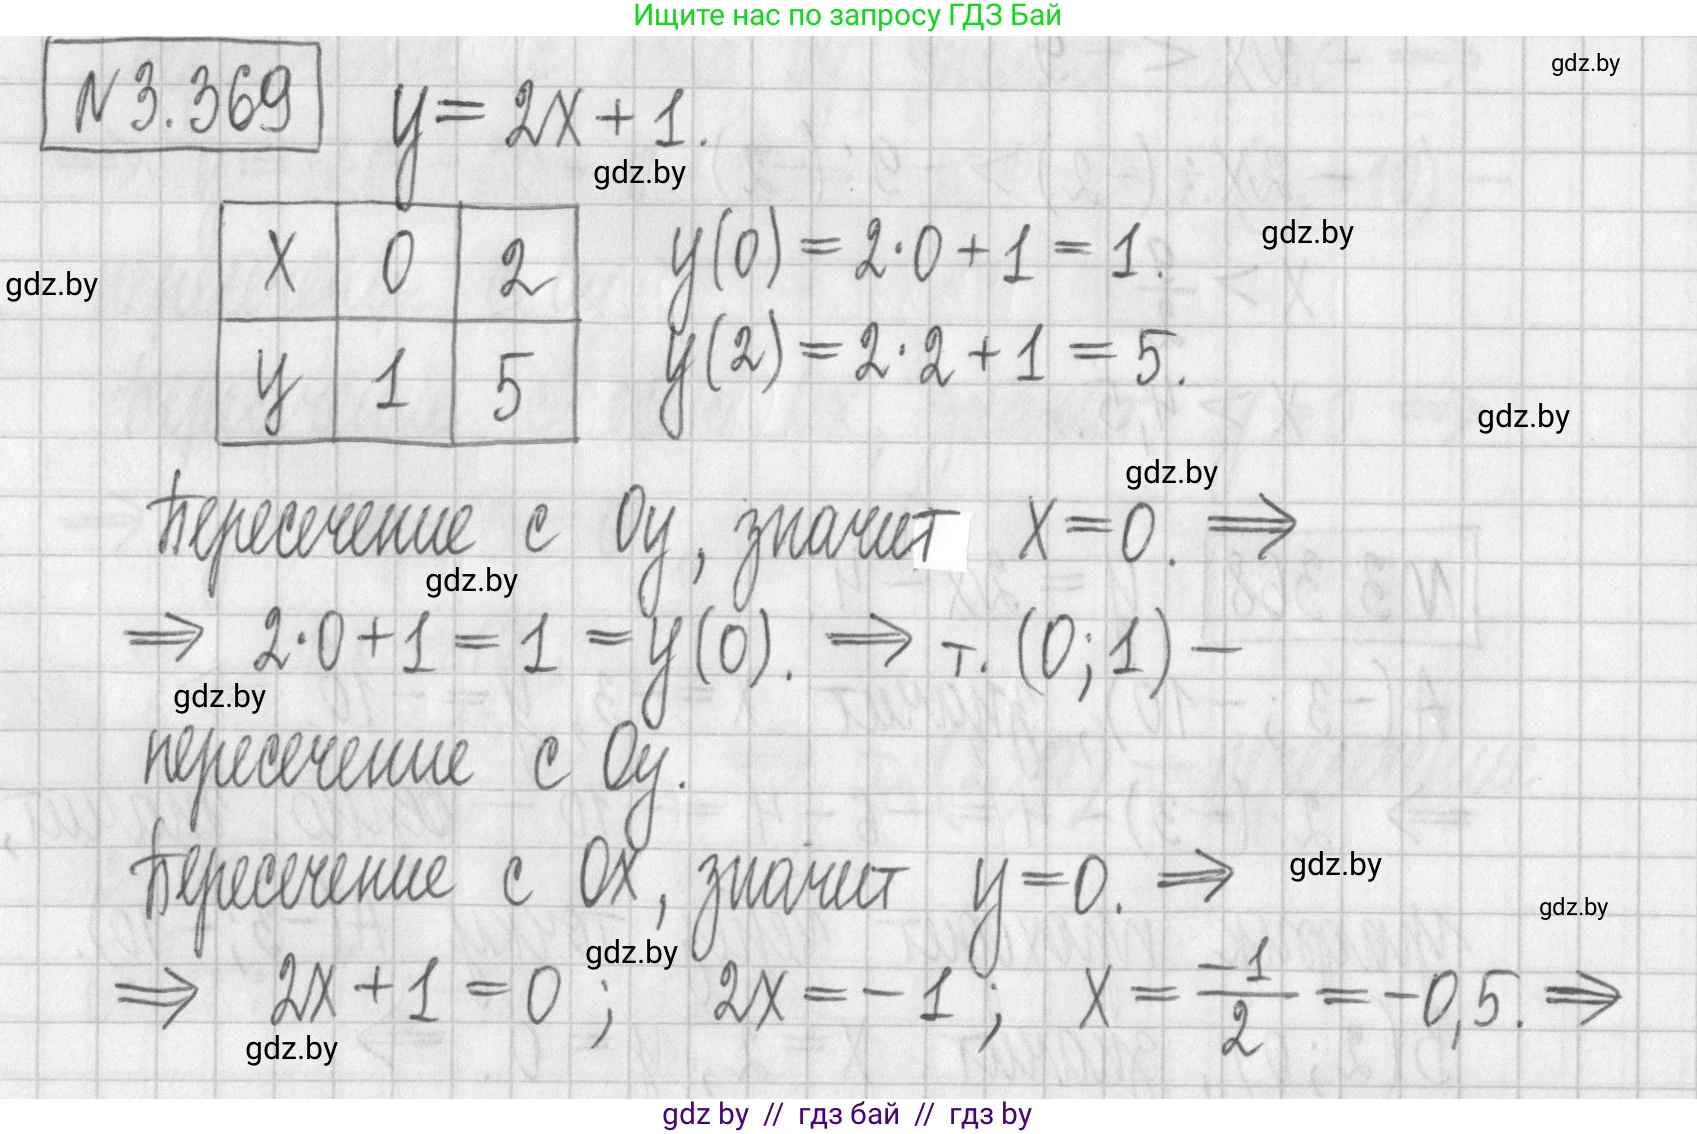 Ищите нас по запросу ГДЗ Бай
gdz.by
N3.369 y = 2x + 1.
gdz.by
x 0 2 y(0) = 2·0 + 1 = 1.
gdz.by
gdz.by
y 1 5 y(2) = 2·2 + 1 = 5.
gdz.by
gdz.by
Пересечение с Oy, значит x = 0. ⇒
gdz.by
⇒ 2·0 + 1 = 1 = y(0). ⇒ т. (0; 1) –
gdz.by
пересечение с Oy.
Пересечение с Ox, значит y = 0. ⇒
gdz.by
gdz.by
gdz.by
⇒ 2x + 1 = 0; 2x = -1; x = -1/2 = -0,5. ⇒
gdz.by
gdz by // гдз бай // гдз by